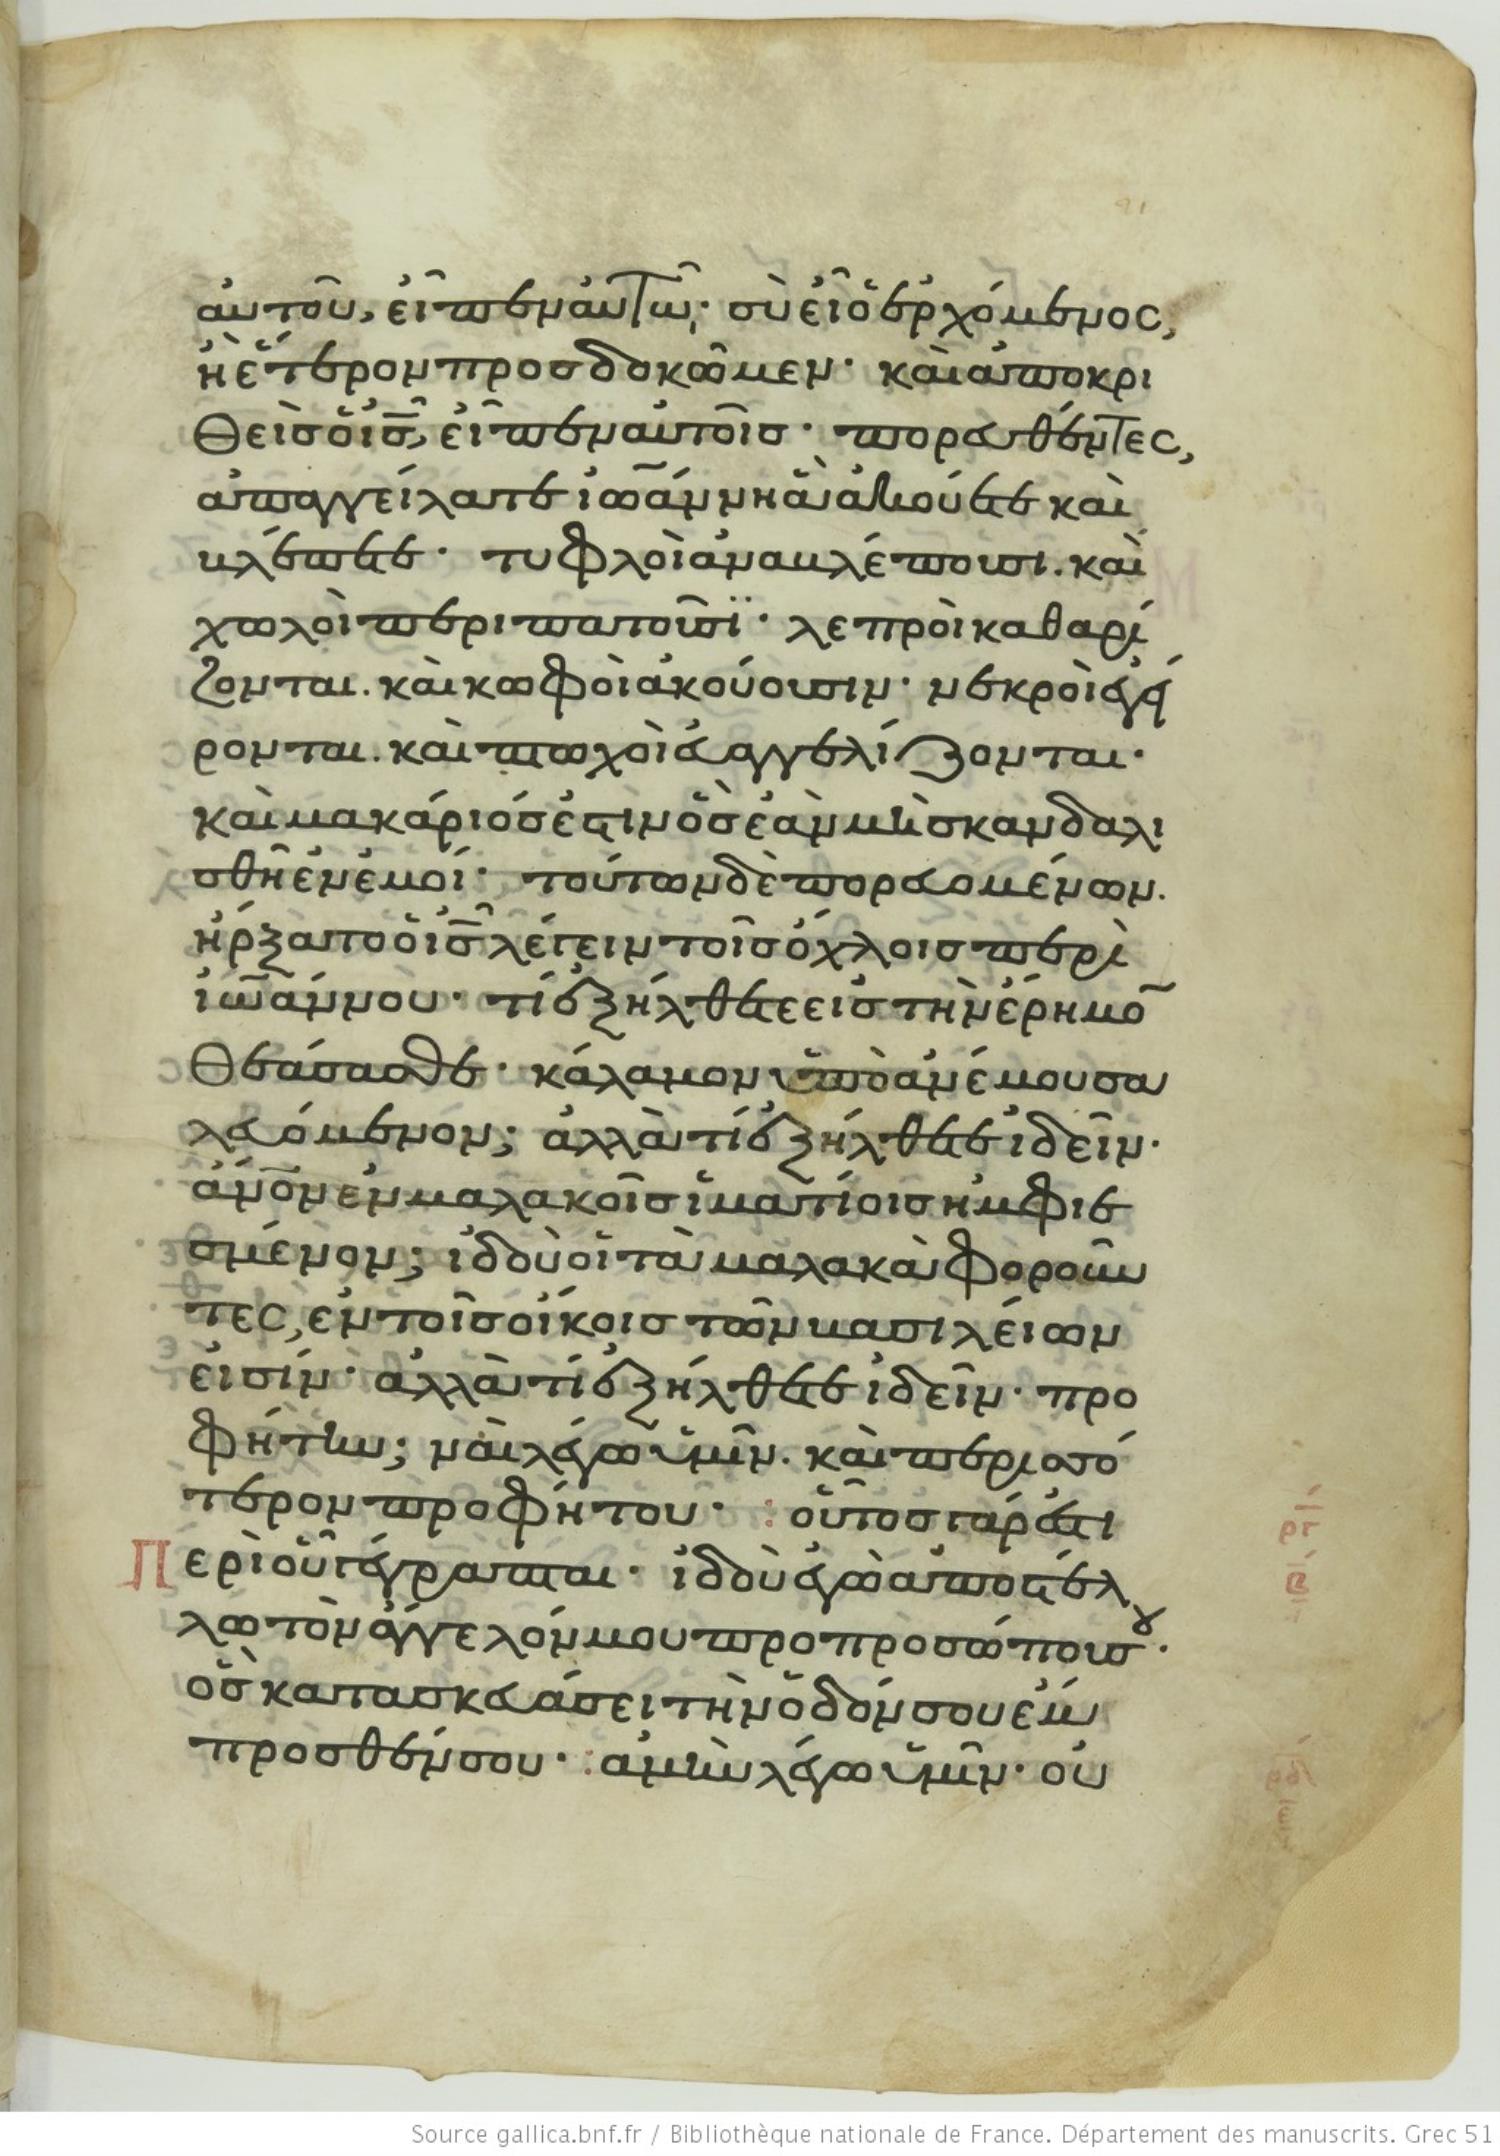 αὐτοῦ, εἶπεν αὐτῶ· σὺ εἶ ὁ ἐρχόμενος,
ἢ ἕτερον προσδοκῶμεν· καὶ ἀποκρι
θεὶς ὁ ἰς, εἶπεν αὐτοῖς· πορευθέντες,
ἀπαγγείλατε ἰωάννη ἃ ἀκούετε καὶ
βλέπετε· τυφλοὶ ἀναβλέπουσι. καὶ
χωλοὶ περιπατοῦσϊ· λεπροὶ καθαρί
ζονται. καὶ κωφοὶ ἀκούουσιν· νεκροὶ ἐγεί
ρονται. καὶ πτωχοὶ εὐαγγελίζονται·
καὶ μακάριός ἐστιν ὃς ἐὰν μὴ σκανδαλι
σθῆ ἐν ἐμοί· τούτων δὲ πορευομένων.
ἤρξατο ὁ ἰς λέγειν τοῖς ὄχλοις περὶ
ἰωάννου· τί ἐξήλθετε εἰς τὴν ἔρημο
θεάσασθε· κάλαμον ὑπὸ ἀνέμου σα
λευόμενον; ἀλλὰ τί ἐξήλθετε ἰδεῖν·
ἄνον ἐν μαλακοῖς ἱματίοις ἠμφιε
σμένον; ἰδοὺ οἱ τὰ μαλακὰ φοροῦν
τες, ἐν τοῖς οἴκοις τῶν βασιλείων
εἰσίν· ἀλλὰ τί ἐξήλθετε ἰδεῖν· προ
φήτην; ναὶ λέγω ὑμῖν. καὶ περισσό
τερον προφήτου· : οὗτος γάρ ἐστι
Περὶ οὗ γέγραπται· ἰδοὺ ἐγὼ ἀποστέλ
λω τὸν ἄγγελόν μου πρὸ προσώπου σου·
ὃς κατασκευάσει τὴν ὁδόν σου ἔμ
προσθέν σου· : ἀμὴν λέγω ὑμῖν· οὐ
Source gallica.bnf.fr / Bibliothèque nationale de France. Département des manuscrits. Grec 51